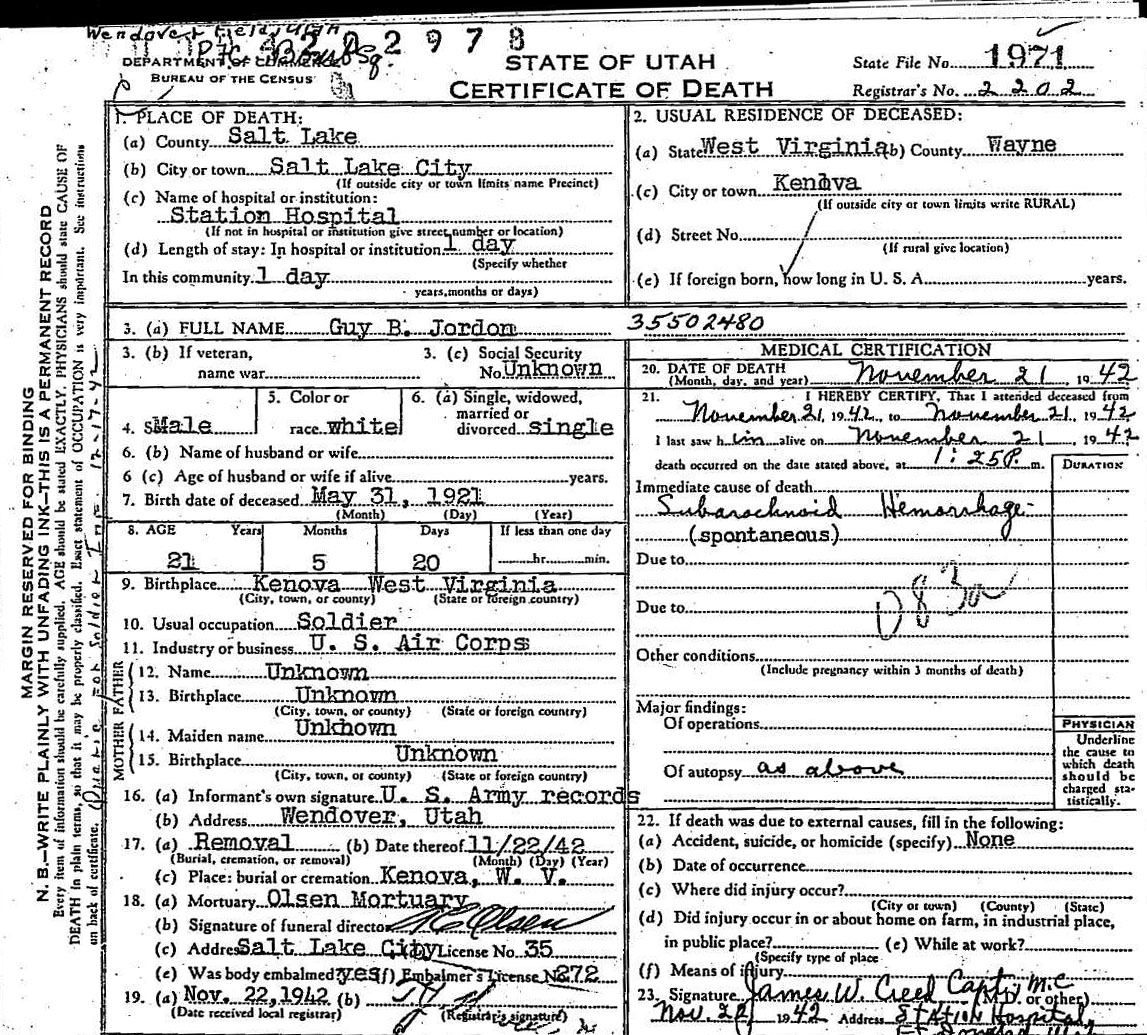 Wendover Field, Utah
Pfc
2 9 7 8
DEPARTMENT OF COMMERCE
BUREAU OF THE CENSUS
STATE OF UTAH
CERTIFICATE OF DEATH
State File No. 1971
Registrar's No. 2202
MARGIN RESERVED FOR BINDING
N. B.—WRITE PLAINLY WITH UNFADING INK—THIS IS A PERMANENT RECORD
Every item of information should be carefully supplied. AGE should be stated EXACTLY. PHYSICIANS should state CAUSE OF
DEATH in plain terms, so that it may be properly classified. Exact statement of OCCUPATION is very important. See instructions
on back of certificate. 12-17-42
1. PLACE OF DEATH:
(a) County Salt Lake
(b) City or town Salt Lake City
(If outside city or town limits name Precinct)
(c) Name of hospital or institution:
Station Hospital
(If not in hospital or institution give street number or location)
(d) Length of stay: In hospital or institution 1 day
(Specify whether
In this community 1 day
years, months or days)
2. USUAL RESIDENCE OF DECEASED:
(a) State West Virginia (b) County Wayne
(c) City or town Kenova
(If outside city or town limits write RURAL)
(d) Street No.
(If rural give location)
(e) If foreign born, how long in U. S. A. years.
3. (a) FULL NAME Guy B. Jordon 35502480
3. (b) If veteran,
name war
3. (c) Social Security
No. Unknown
4. Sex Male
5. Color or
race white
6. (a) Single, widowed,
married or
divorced single
6. (b) Name of husband or wife
6 (c) Age of husband or wife if alive years.
7. Birth date of deceased May 31, 1921
(Month) (Day) (Year)
8. AGE Years Months Days If less than one day
21 5 20 hr. min.
9. Birthplace Kenova West Virginia
(City, town, or county) (State or foreign country)
10. Usual occupation Soldier
11. Industry or business U. S. Air Corps
FATHER
12. Name Unknown
13. Birthplace Unknown
(City, town, or county) (State or foreign country)
MOTHER
14. Maiden name Unknown
15. Birthplace Unknown
(City, town, or county) (State or foreign country)
16. (a) Informant's own signature U. S. Army records
(b) Address Wendover, Utah
17. (a) Removal (b) Date thereof 11/22/42
(Burial, cremation, or removal) (Month) (Day) (Year)
(c) Place: burial or cremation Kenova, W. V.
18. (a) Mortuary Olsen Mortuary
(b) Signature of funeral director Olsen
(c) Address Salt Lake City License No. 35
(e) Was body embalmed? yes (f) Embalmer's License No. 272
19. (a) Nov. 22, 1942 (b)
(Date received local registrar) (Registrar's signature)
MEDICAL CERTIFICATION
20. DATE OF DEATH
(Month, day, and year) November 21, 1942
21. I HEREBY CERTIFY, That I attended deceased from
November 21, 1942, to November 21, 1942
I last saw him alive on November 21, 1942
death occurred on the date stated above, at 1:25 P. m.
DURATION
Immediate cause of death
Subarachnoid Hemorrhage -
(spontaneous)
Due to
083a
Due to
Other conditions
(Include pregnancy within 3 months of death)
Major findings:
Of operations
Of autopsy as above
PHYSICIAN
Underline
the cause to
which death
should be
charged sta-
tistically.
22. If death was due to external causes, fill in the following:
(a) Accident, suicide, or homicide (specify) None
(b) Date of occurrence
(c) Where did injury occur?
(City or town) (County) (State)
(d) Did injury occur in or about home on farm, in industrial place,
in public place? (e) While at work?
(Specify type of place
(f) Means of injury
23. Signature James W. Creed Capt. M.C
(M.D. or other)
1942 Address Station Hospital,